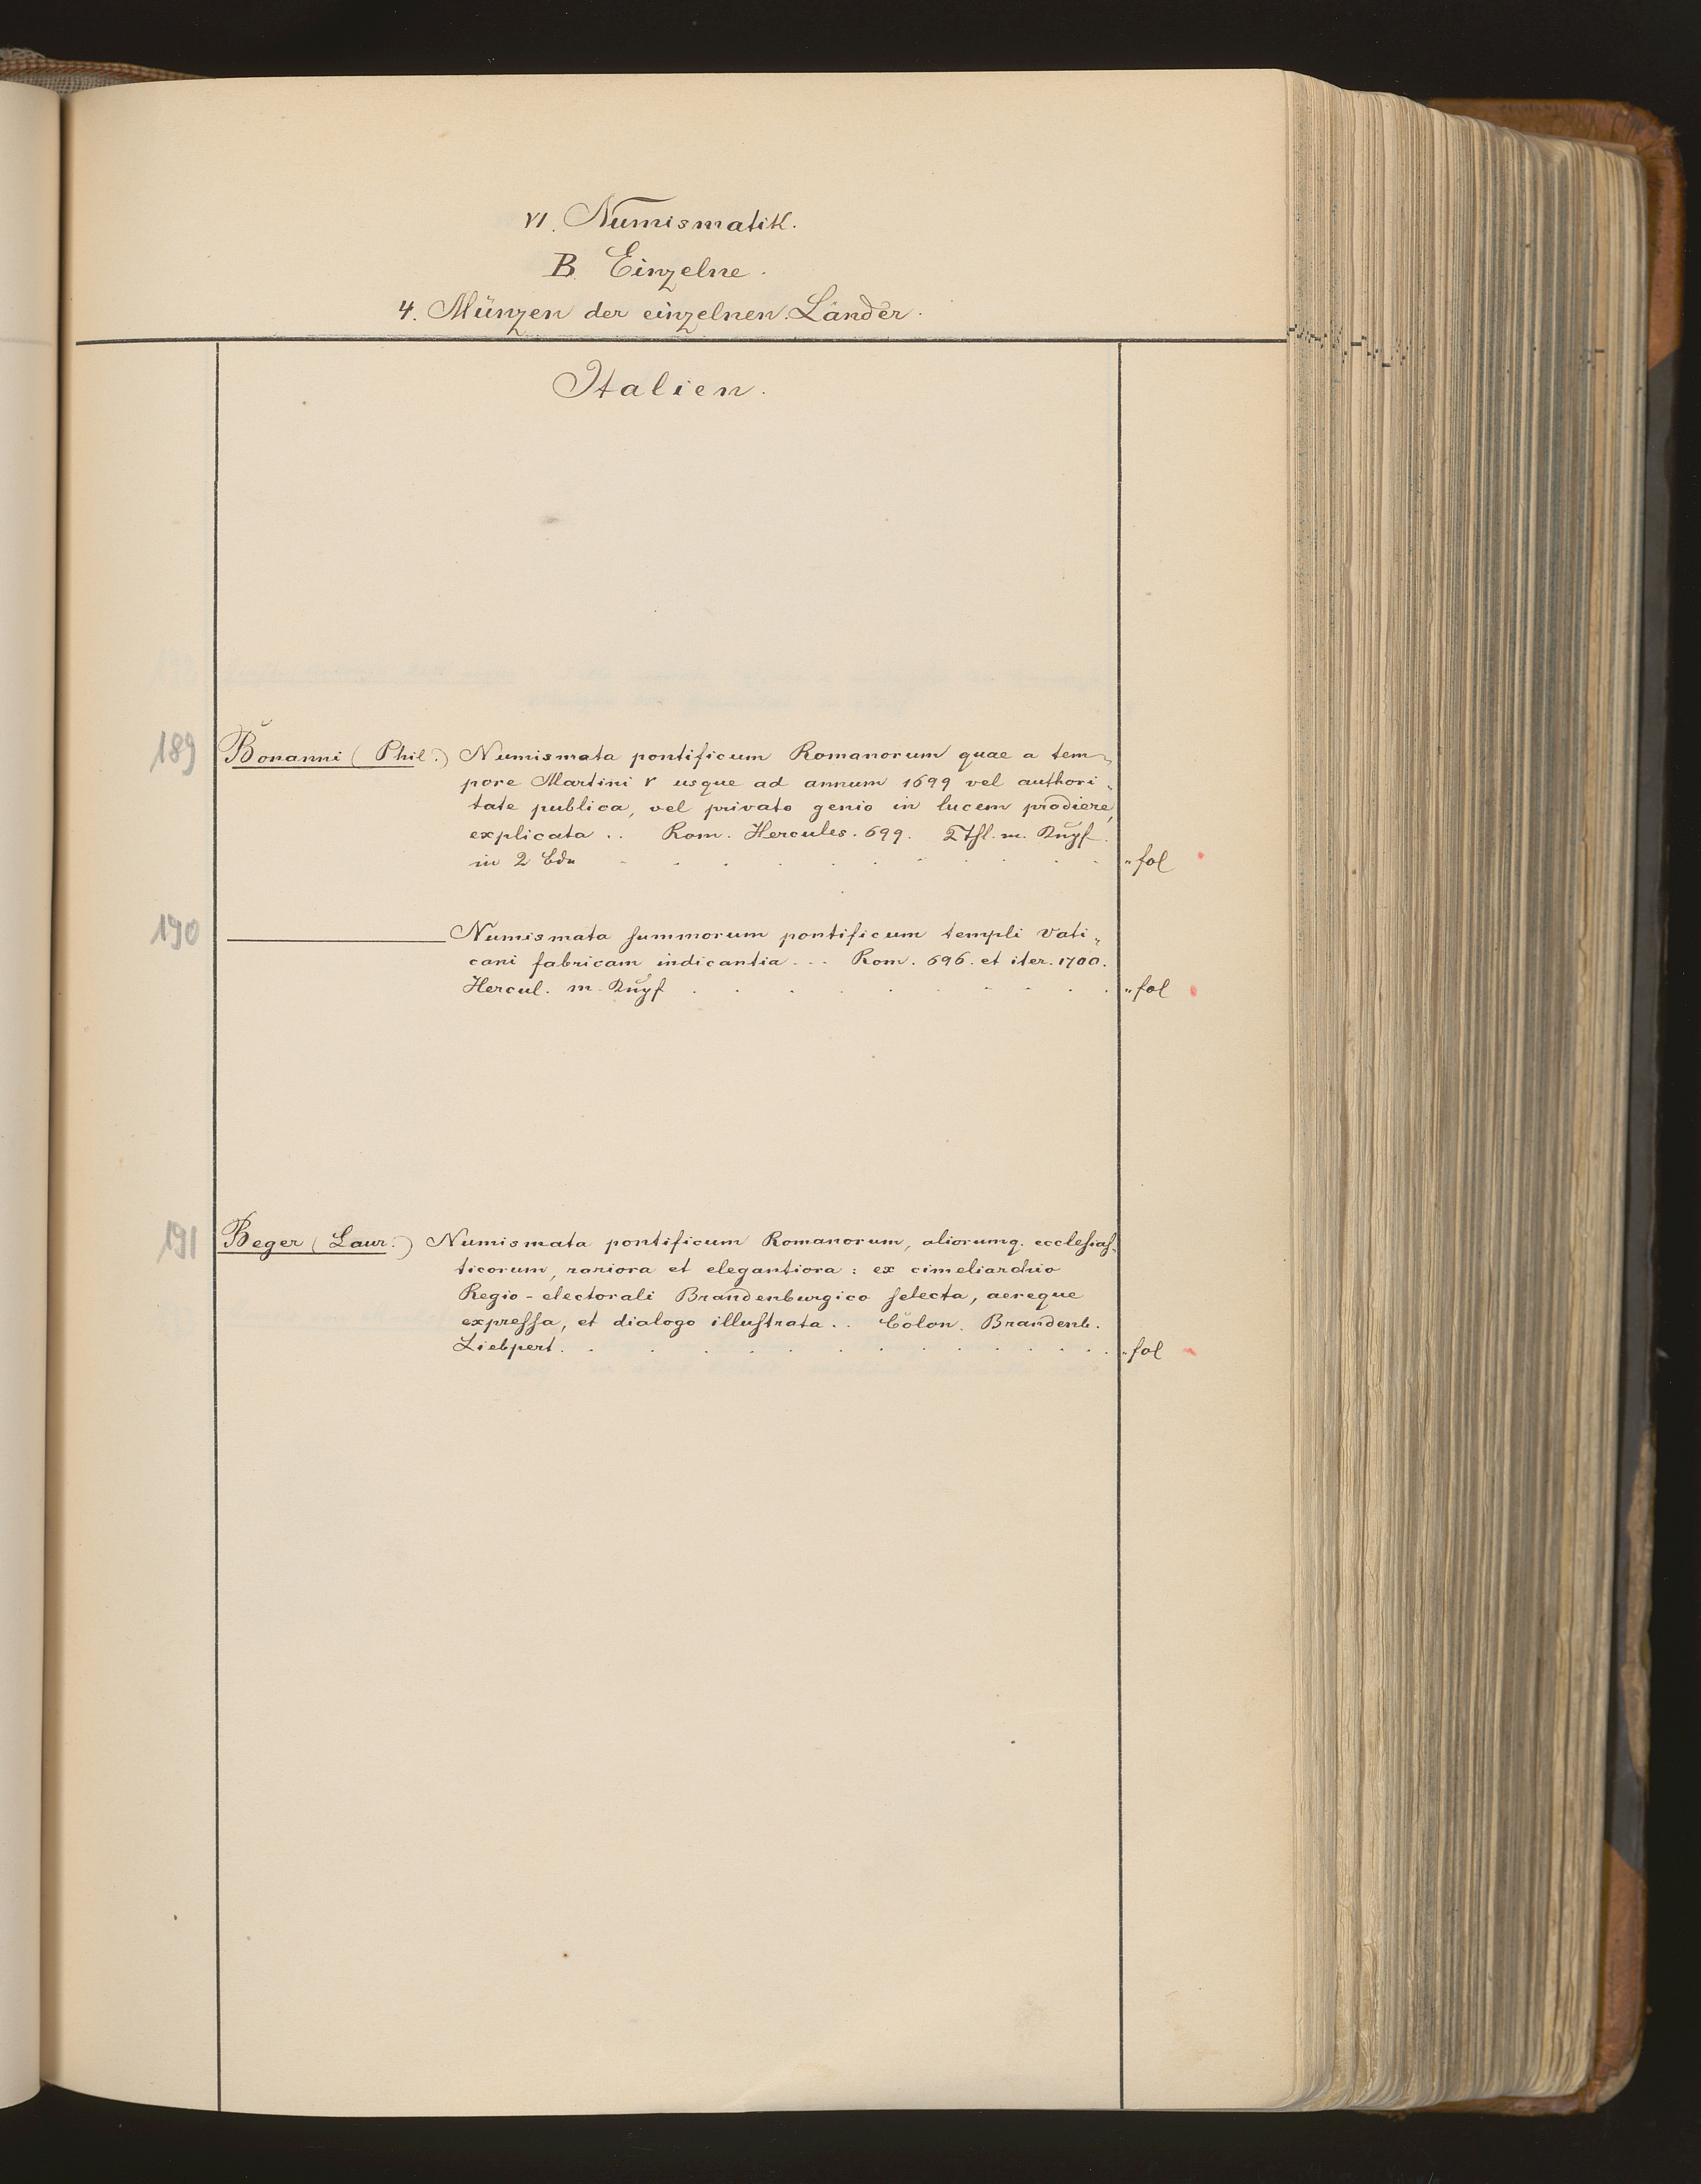 VI. Numismatik.
B. Einzelne.
4. Münzen der einzelnen Länder.
Italien.
189 Bonanni (Phil.) Numismata pontificum Romanorum quae a tem-
pore Martini V usque ad annum 1699 vel authori-
tate publica, vel privato genio in lucem prodiere,
explicata .. Rom. Hercules. 699. 2 Thl. m. Kupf.
in 2 Bdn „ fol
190 ——— Numismata summorum pontificum templi Vati-
cani fabricam indicantia ... Rom. 696. et iter. 1700.
Hercul. m. Kupf „ fol
191 Beger (Laur.) Numismata pontificum Romanorum, aliorumq. ecclesias-
ticorum, rariora et elegantiora: ex cimeliarchio
Regio-electorali Brandenburgico selecta, aereque
expressa, et dialogo illustrata .. Cölon. Brandenb.
Liebpert. „ fol